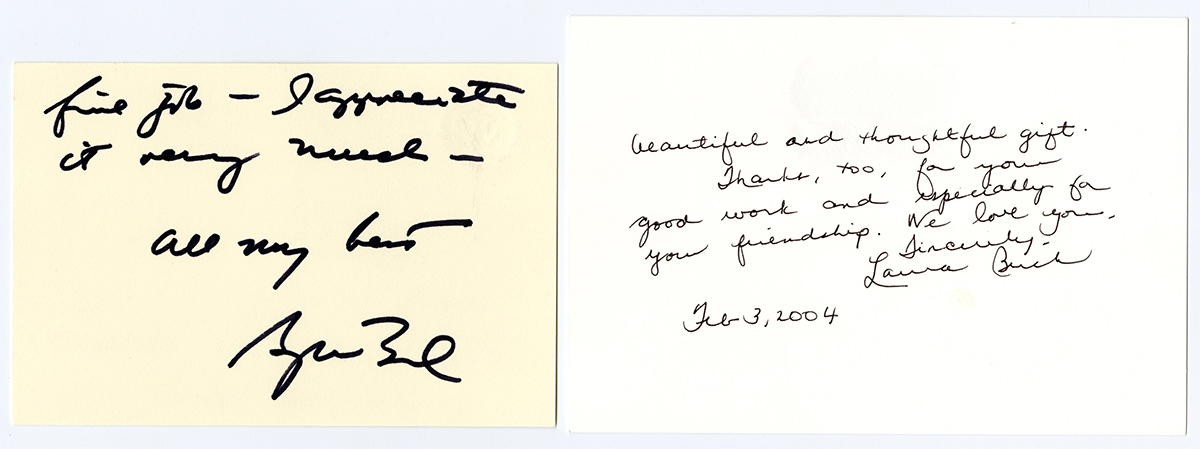 fine job – I appreciate
it very much –
all my best
George Bush
beautiful and thoughtful gift.
Thanks, too, for your
good work and especially for
your friendship. We love you.
Sincerely-
Laura Bush
Feb 3, 2004